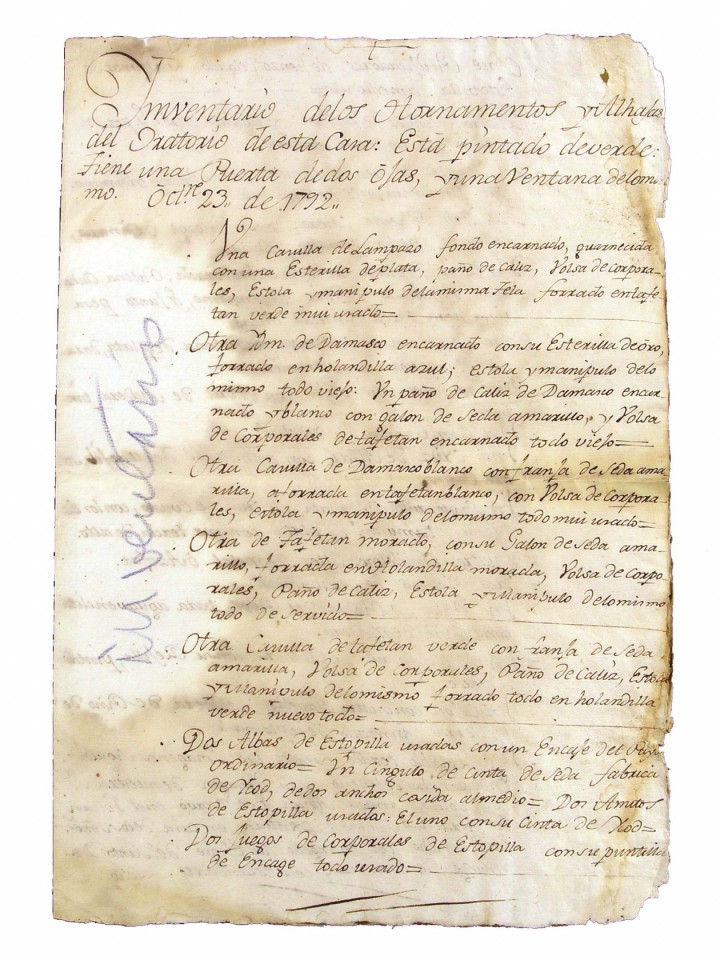 Imventario delos Hornamentos y Alhajas
del Oratorio de esta Casa: Está pintado de verde:
tiene una Puerta dedos ôjas, y una Ventana delomis
mo. Octre. 23,, de 1792,,
Vna Casulla de Lampazo fondo encarnado, guarnecida
con una Esterilla de plata, paño de caliz, Volsa de corpora-
les, Estola y manipulo delamisma tela forrado en tafe-
tan verde mui usado=
Otra Ydm. de Damasco encarnado con su Esterilla de óro,
forrado en holandilla azul; estola y manipulo delo
mismo todo viejo: Vn paño de Caliz de Damasco encar-
nado y blanco con galon de seda amarillo, y Volsa
de Corporales de tafetan encarnado todo viejo=
Otra Casulla de Damasco blanco con franja de seda ama
rilla, aforrada en tafetan blanco; con Volsa de Corpora-
les, estola y manipulo delomismo todo mui usado=
Otra de Tafetan morado, con su Galon de seda ama-
rillo, forrada en Holandilla morada, Volsa de corpo-
rales, Paño de Caliz, Estola y Manipulo delomismo
todo de servicio=
Otra Casulla de tafetan verde con franja de seda
amarilla, Volsa de Corporales, Paño de Caliz, Estola
y Manipulo delomismo forrado todo en holandilla
verde nuevo todo=
Dos Albas de Estopilla usadas con un Encaje del
ordinario= Vn Cingulo de cinta de seda fabrica
de Ycod, dedos anchos cosida al medio= Dos Amitos
de Estopilla usados: El uno con su Cinta de Ycod=
Dos Juegos de Corporales de Estopilla con su puntilla
de Encage todo usado=
Inventario